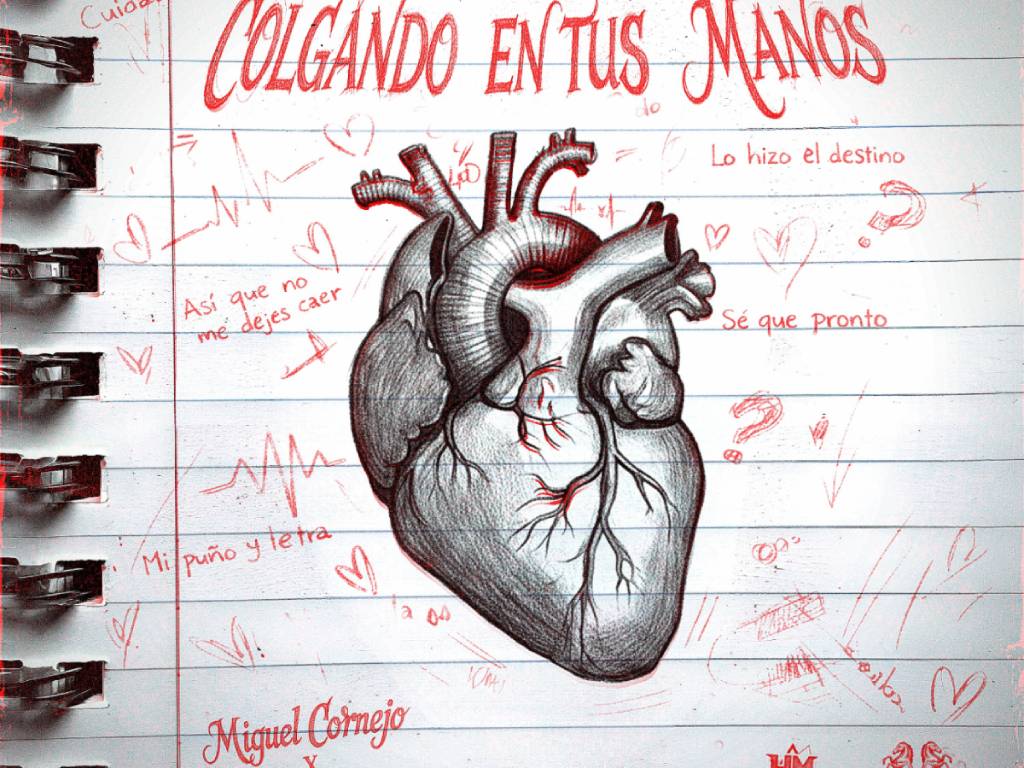 COLGANDO EN TUS MANOS
Lo hizo el destino
Así que no
me dejes caer
Sé que pronto
Mi puño y letra
Miguel Cornejo
X
HM